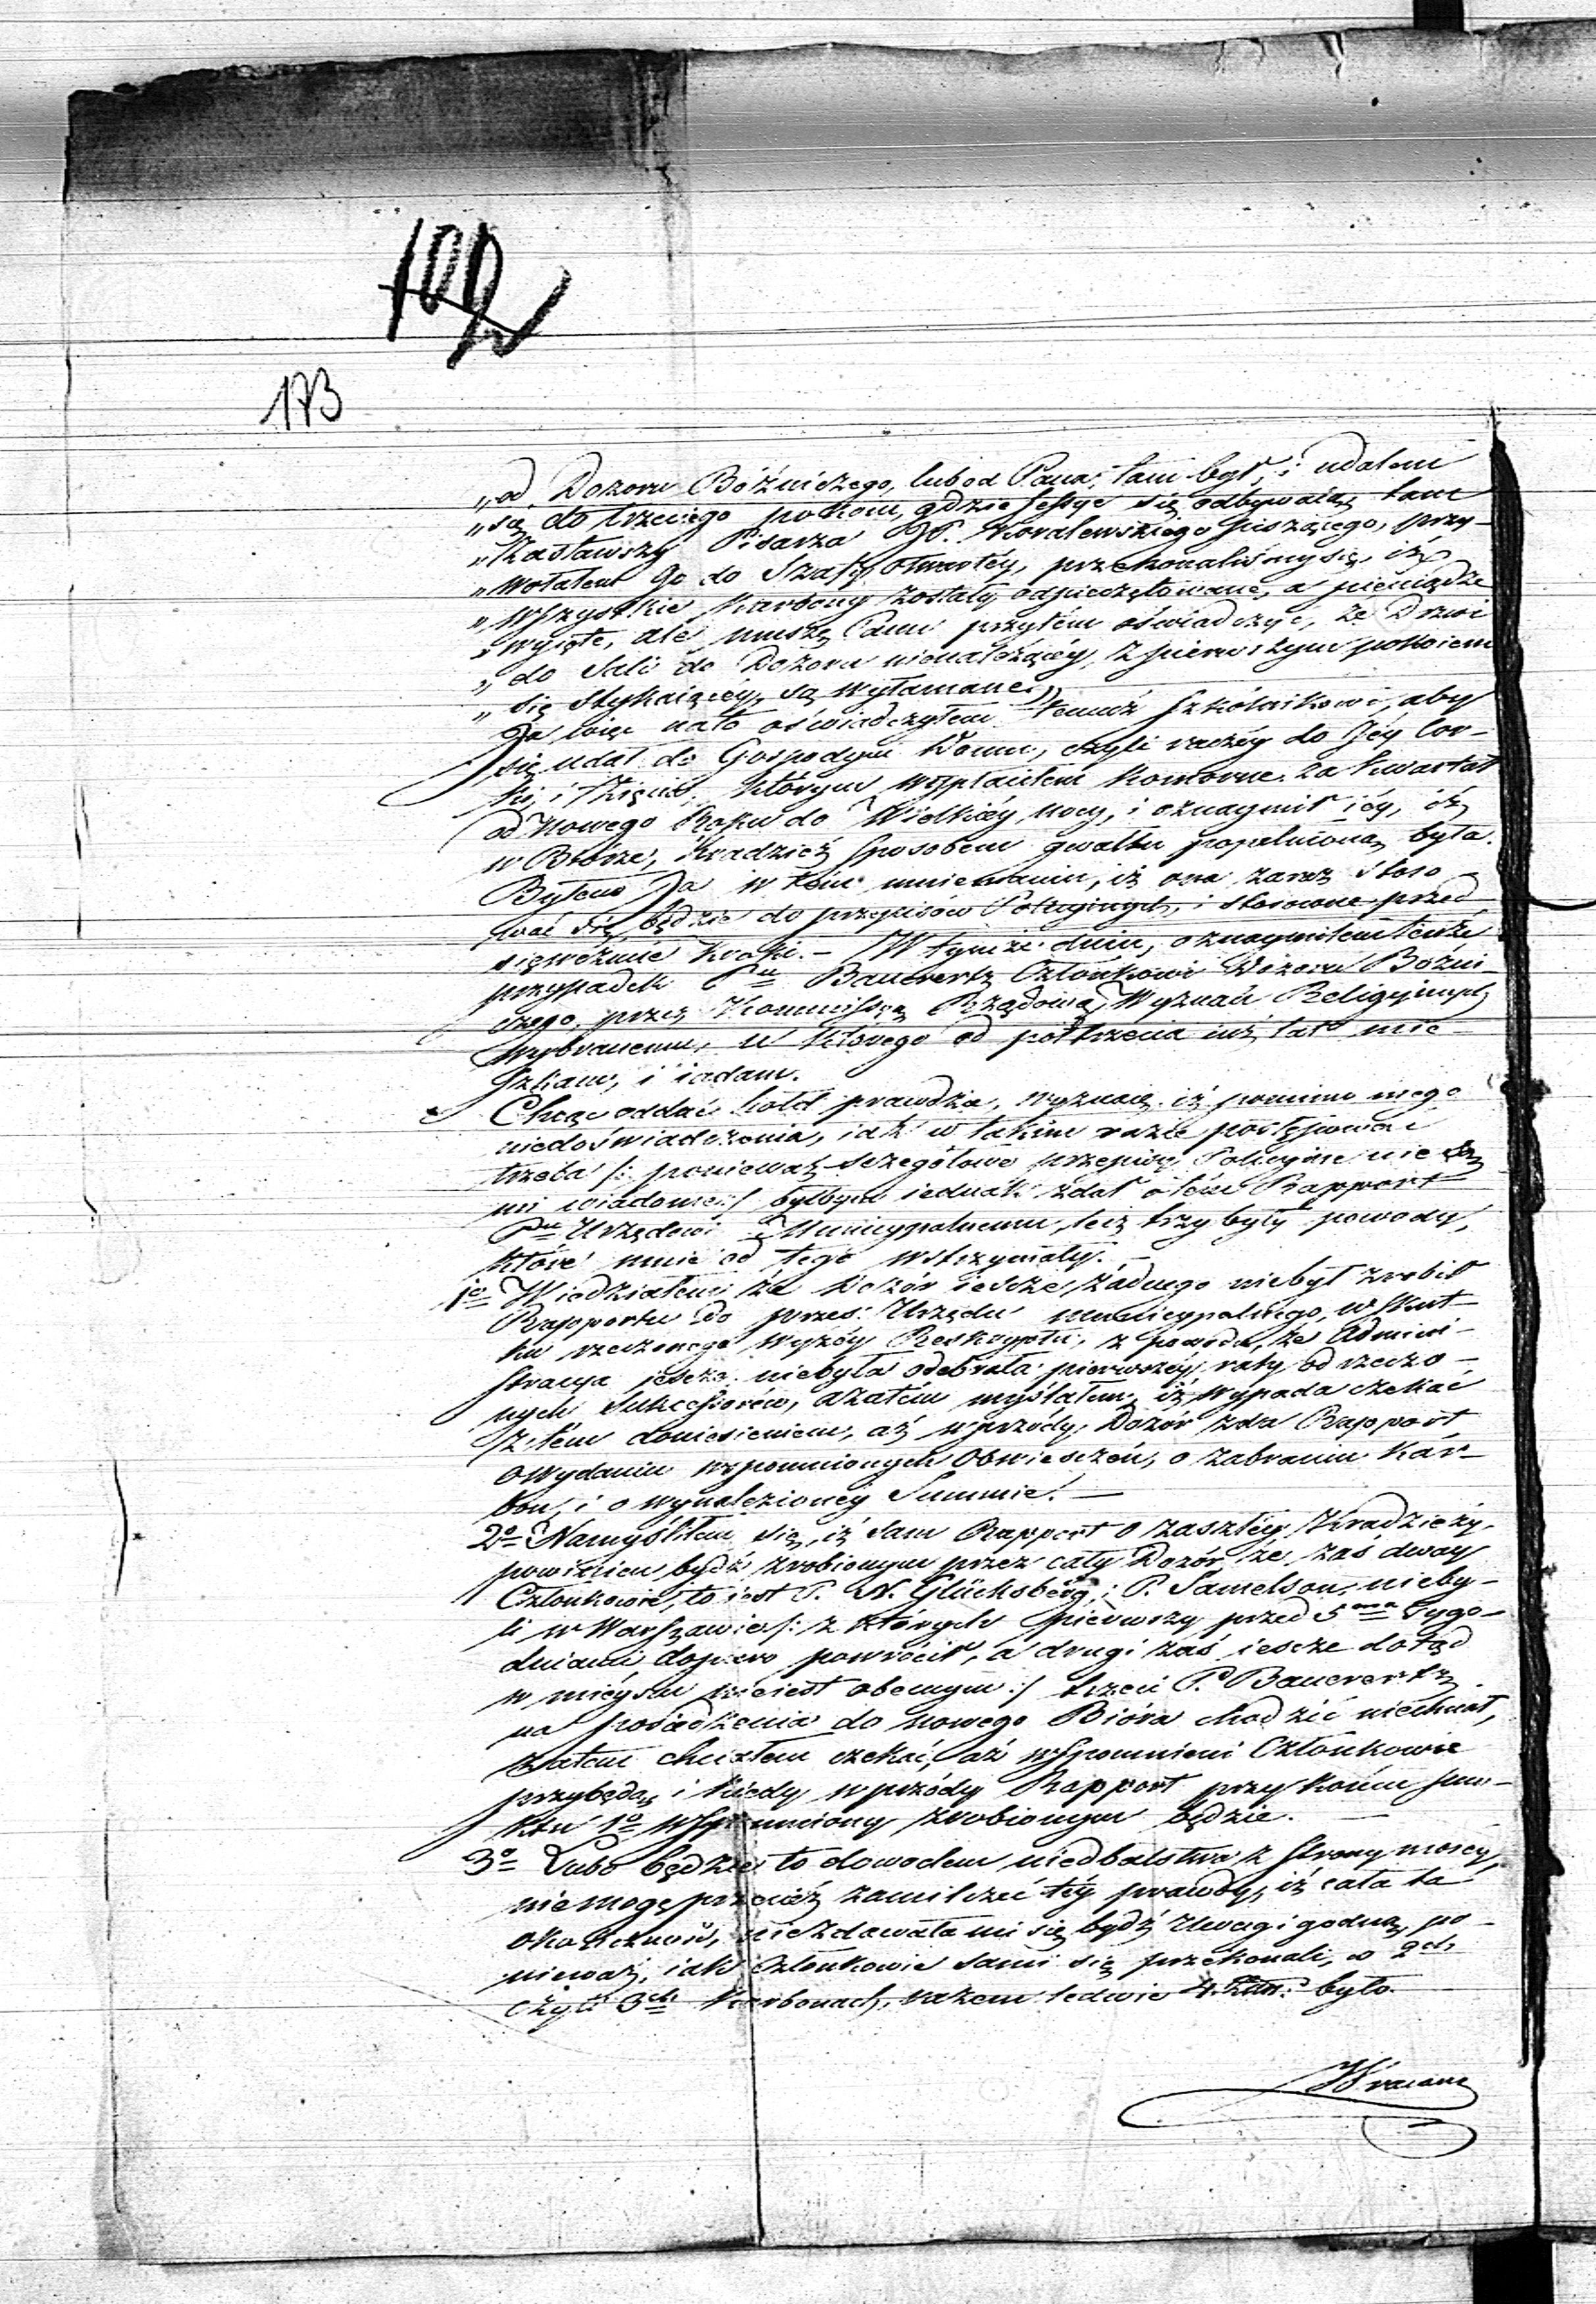 102
173
„od Dozoru Bóźniczego, lub od Pana, tam był, i udałem
„się do trzeciego pokoiu, gdzie sessye się odbywaią, tam
„Zastawszy Pisarza JP. Kowalewskiego piszącego, przy-
„wołałem go do Szafy otwartéy, przekonaliśmy się, iż
„wszystkie karbony zostały odpieczętowane, a pieniądze
„wyięte, ale muszę Panu przytém oświadczyć, że Drzwi
„do Sali do Dozoru nienależącéy, z pierwszym pokoiem
„się stykaiącéy, są wyłamane."
Ja więc na to oświadczyłem temuż Szkólnikowi, aby
się udał do Gospodyni Domu, czyli raczéy do Jéy Cor-
ki, i Zięcia, którym wypłaciłem komorne za kwartał
od Nowego Roku do Wielkiéy Nocy, i oznaymił iéy, iż
w Biórze, kradzież sposobem gwałtu popełnioną była.
Byłem Ja w tém mniemaniu, iż ona zaraz stoso-
wać się będzie do przepisów Policyinych, i stosowne przed
sięweźmie kroki. – W tymże dniu, oznaymiłem tenże
przypadek Pu Bauerertz Członkowi Dozoru Bóźni-
czego, przez Kommissyą Rządową Wyznań Religijnych
wybranemu, u którego od półtrzecia już lat mie-
szkam, i iadam.
Chcąc oddać hołd prawdzie, wyznaię iż pomimo mego
niedoświadczenia, iak w takim razie postępować
trzeba /: ponieważ sczegółowe przepisy Policyine nie są
mi wiadome :/ byłbym iednak zdał o tém Rapport
Pu Urzędowi Municypalnemu, lecz trzy były powody,
które mnie od tego wstrzymały. –
1o Wiedziałem że Dozór iescze żadnego niebył zrobił
Rapportu do przes: Urzędu municypalnego, w skut-
ku rzeczonego wyżéy Reskryptu, z powodu, że Admini-
stracya iescze niebyła odebrała pierwszéy raty od rzeczo-
nych Sukcessorów, a zatém myślałem, iż wypada czekać
z tém doniesieniem, aż wprzódy Dozór zda Rapport
o wydaniu wspomnionych Obwiesczeń, o zabraniu Kar-
bon, i o wynalezionéy Summie. –
2o Namyśliłem się, iż sam Rapport o zaszłéy Kradzieży,
powinien bydź zrobionym przez cały Dozór, że zaś dway
Członkowie, to iest P. N. Glücksberg, i P. Samelson, nieby-
li w Warszawie /: z których pierwszy przed 5ma Tygo-
dniami dopiero powrócił, a drugi zaś iescze dotąd
w mieyscu nieiest obecnym :/ trzeci P. Bauerertz
na posiedzenia do nowego Bióra chodzić niechciał,
zatém chciałem czekać, aż wspomnieni Członkowie
przybędą, i kiedy wprzódy Rapport przy końcu pun-
ktu 1o wspomniony zrobionym będzie. –
3o Lubo będzie to dowodem niedbalstwa z strony moiéy
niemogę przecież zamilczeć téy prawdy, iż cała ta
okoliczność, niezdawała mi się bydź uwagi godną, po-
nieważ, iak Członkowie sami się przekonali, w 2ch
czyli 3ch Karbonach, razem ledwie 4. było.